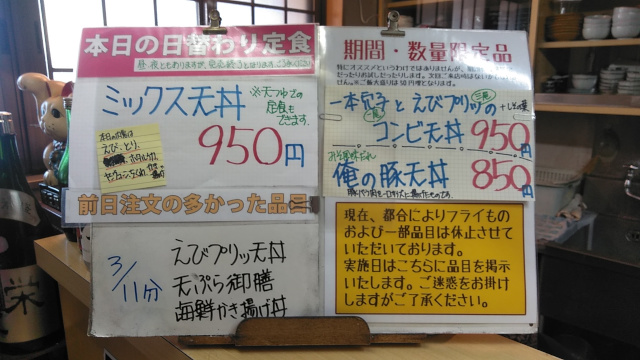 本日の日替わり定食
昼・夜ともありますが、完売終了となります。ご了承ください
ミックス天丼
※天つゆでの
定食も
できます。
950円
本日の内容は
えび、とり、
前日注文の多かった品目
3/11分
えびプリッツ天丼
天ぷら御膳
海鮮かき揚げ丼
期間・数量限定品
特にオススメというわけではありませんが、
一本穴子とえびプリッツの
コンビ天丼 950円
俺の豚天丼 850円
現在、都合によりフライもの
および一部品目は休止させて
いただいております。
実施日はこちらに品目を掲示
いたします。ご迷惑をお掛け
しますがご了承ください。
栄